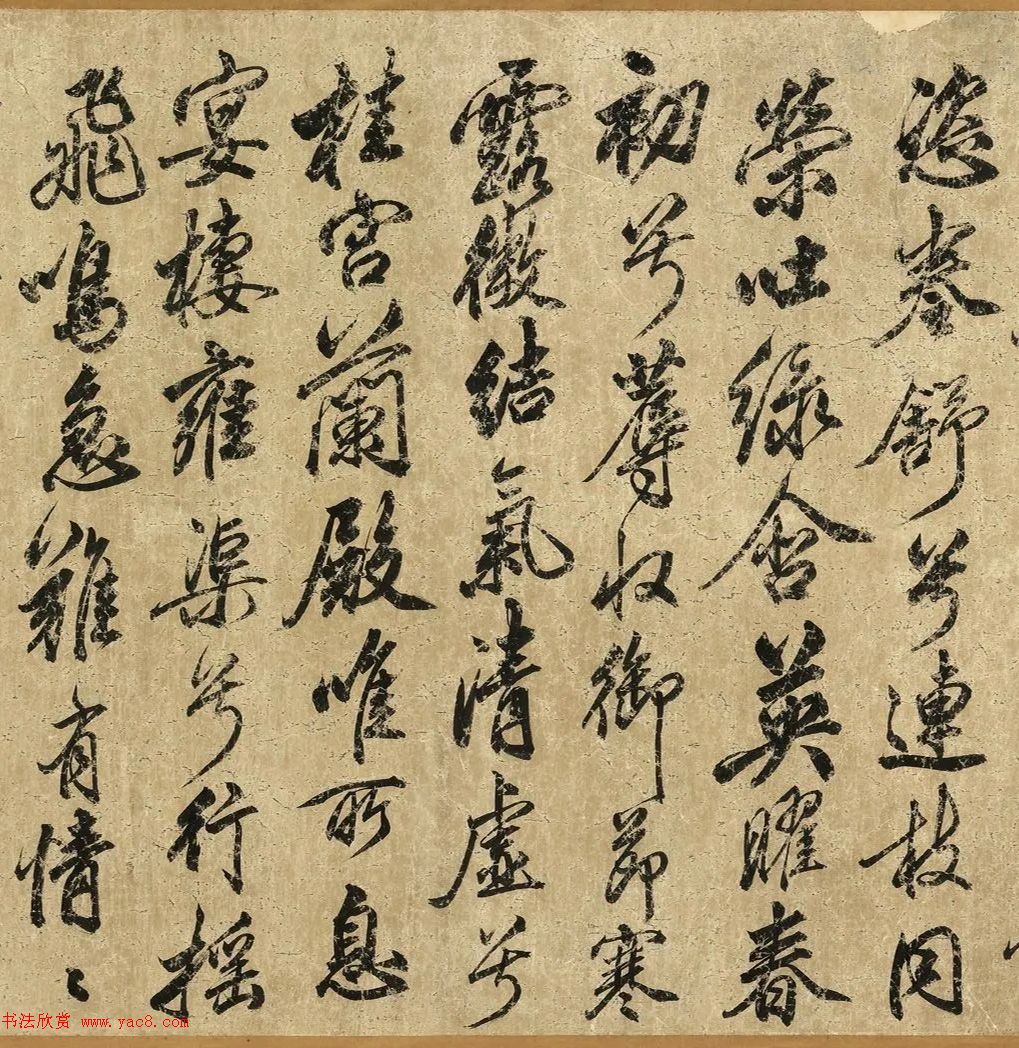 恣卷舒兮連枝同
榮吐綠含英曜春
初兮蓐收御節寒
露微結氣清虛兮
桂宮蘭殿唯所息
宴棲雍渠兮行搖
飛鳴急難有情〻
书法欣赏 www.yac8.com